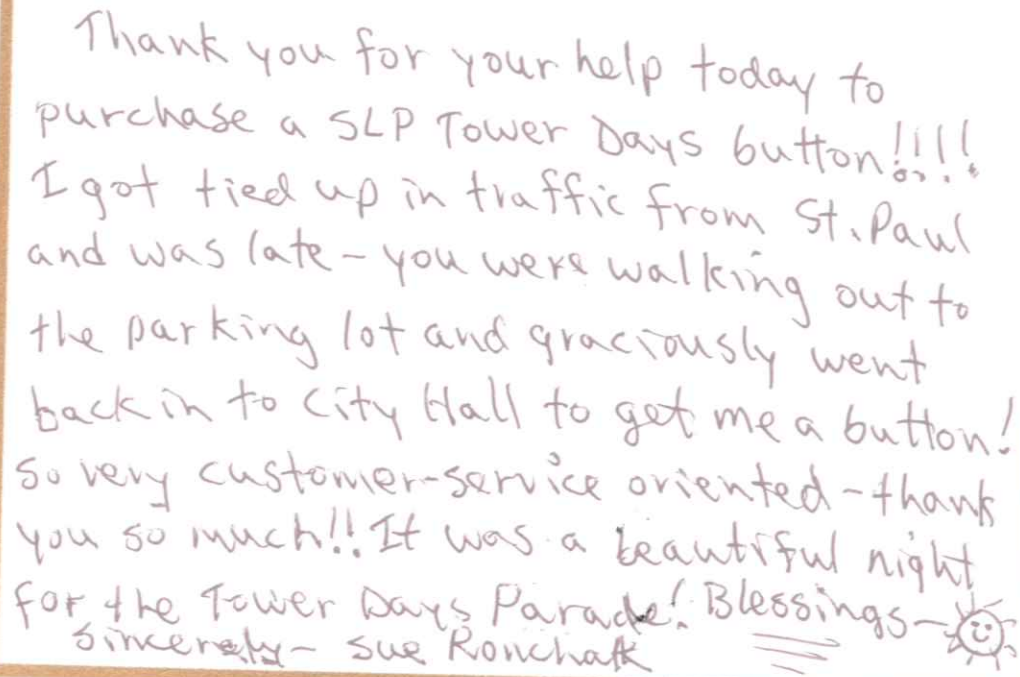 Thank you for your help today to
purchase a SLP Tower Days button!!!!
I got tied up in traffic from St. Paul
and was late - you were walking out to
the parking lot and graciously went
back in to City Hall to get me a button!
So very customer-service oriented - thank
you so much!! It was a beautiful night
for the Tower Days Parade! Blessings -
Sincerely - Sue